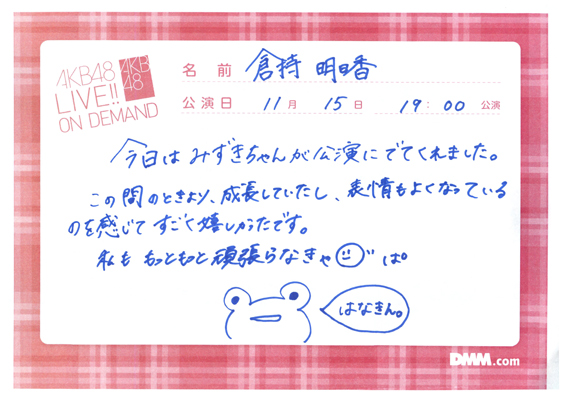 AKB48
LIVE!!
ON DEMAND
AKB
48
名前 倉持 明日香
公演日 11月 15日 19:00 公演
今日はみずきちゃんが公演にでてくれました。
この間のときより、成長していたし、表情もよくなっている
のを感じてすごく嬉しかったです。
私も もっともっと頑張らなきゃ ぱ。
はなきん。
DMM.com